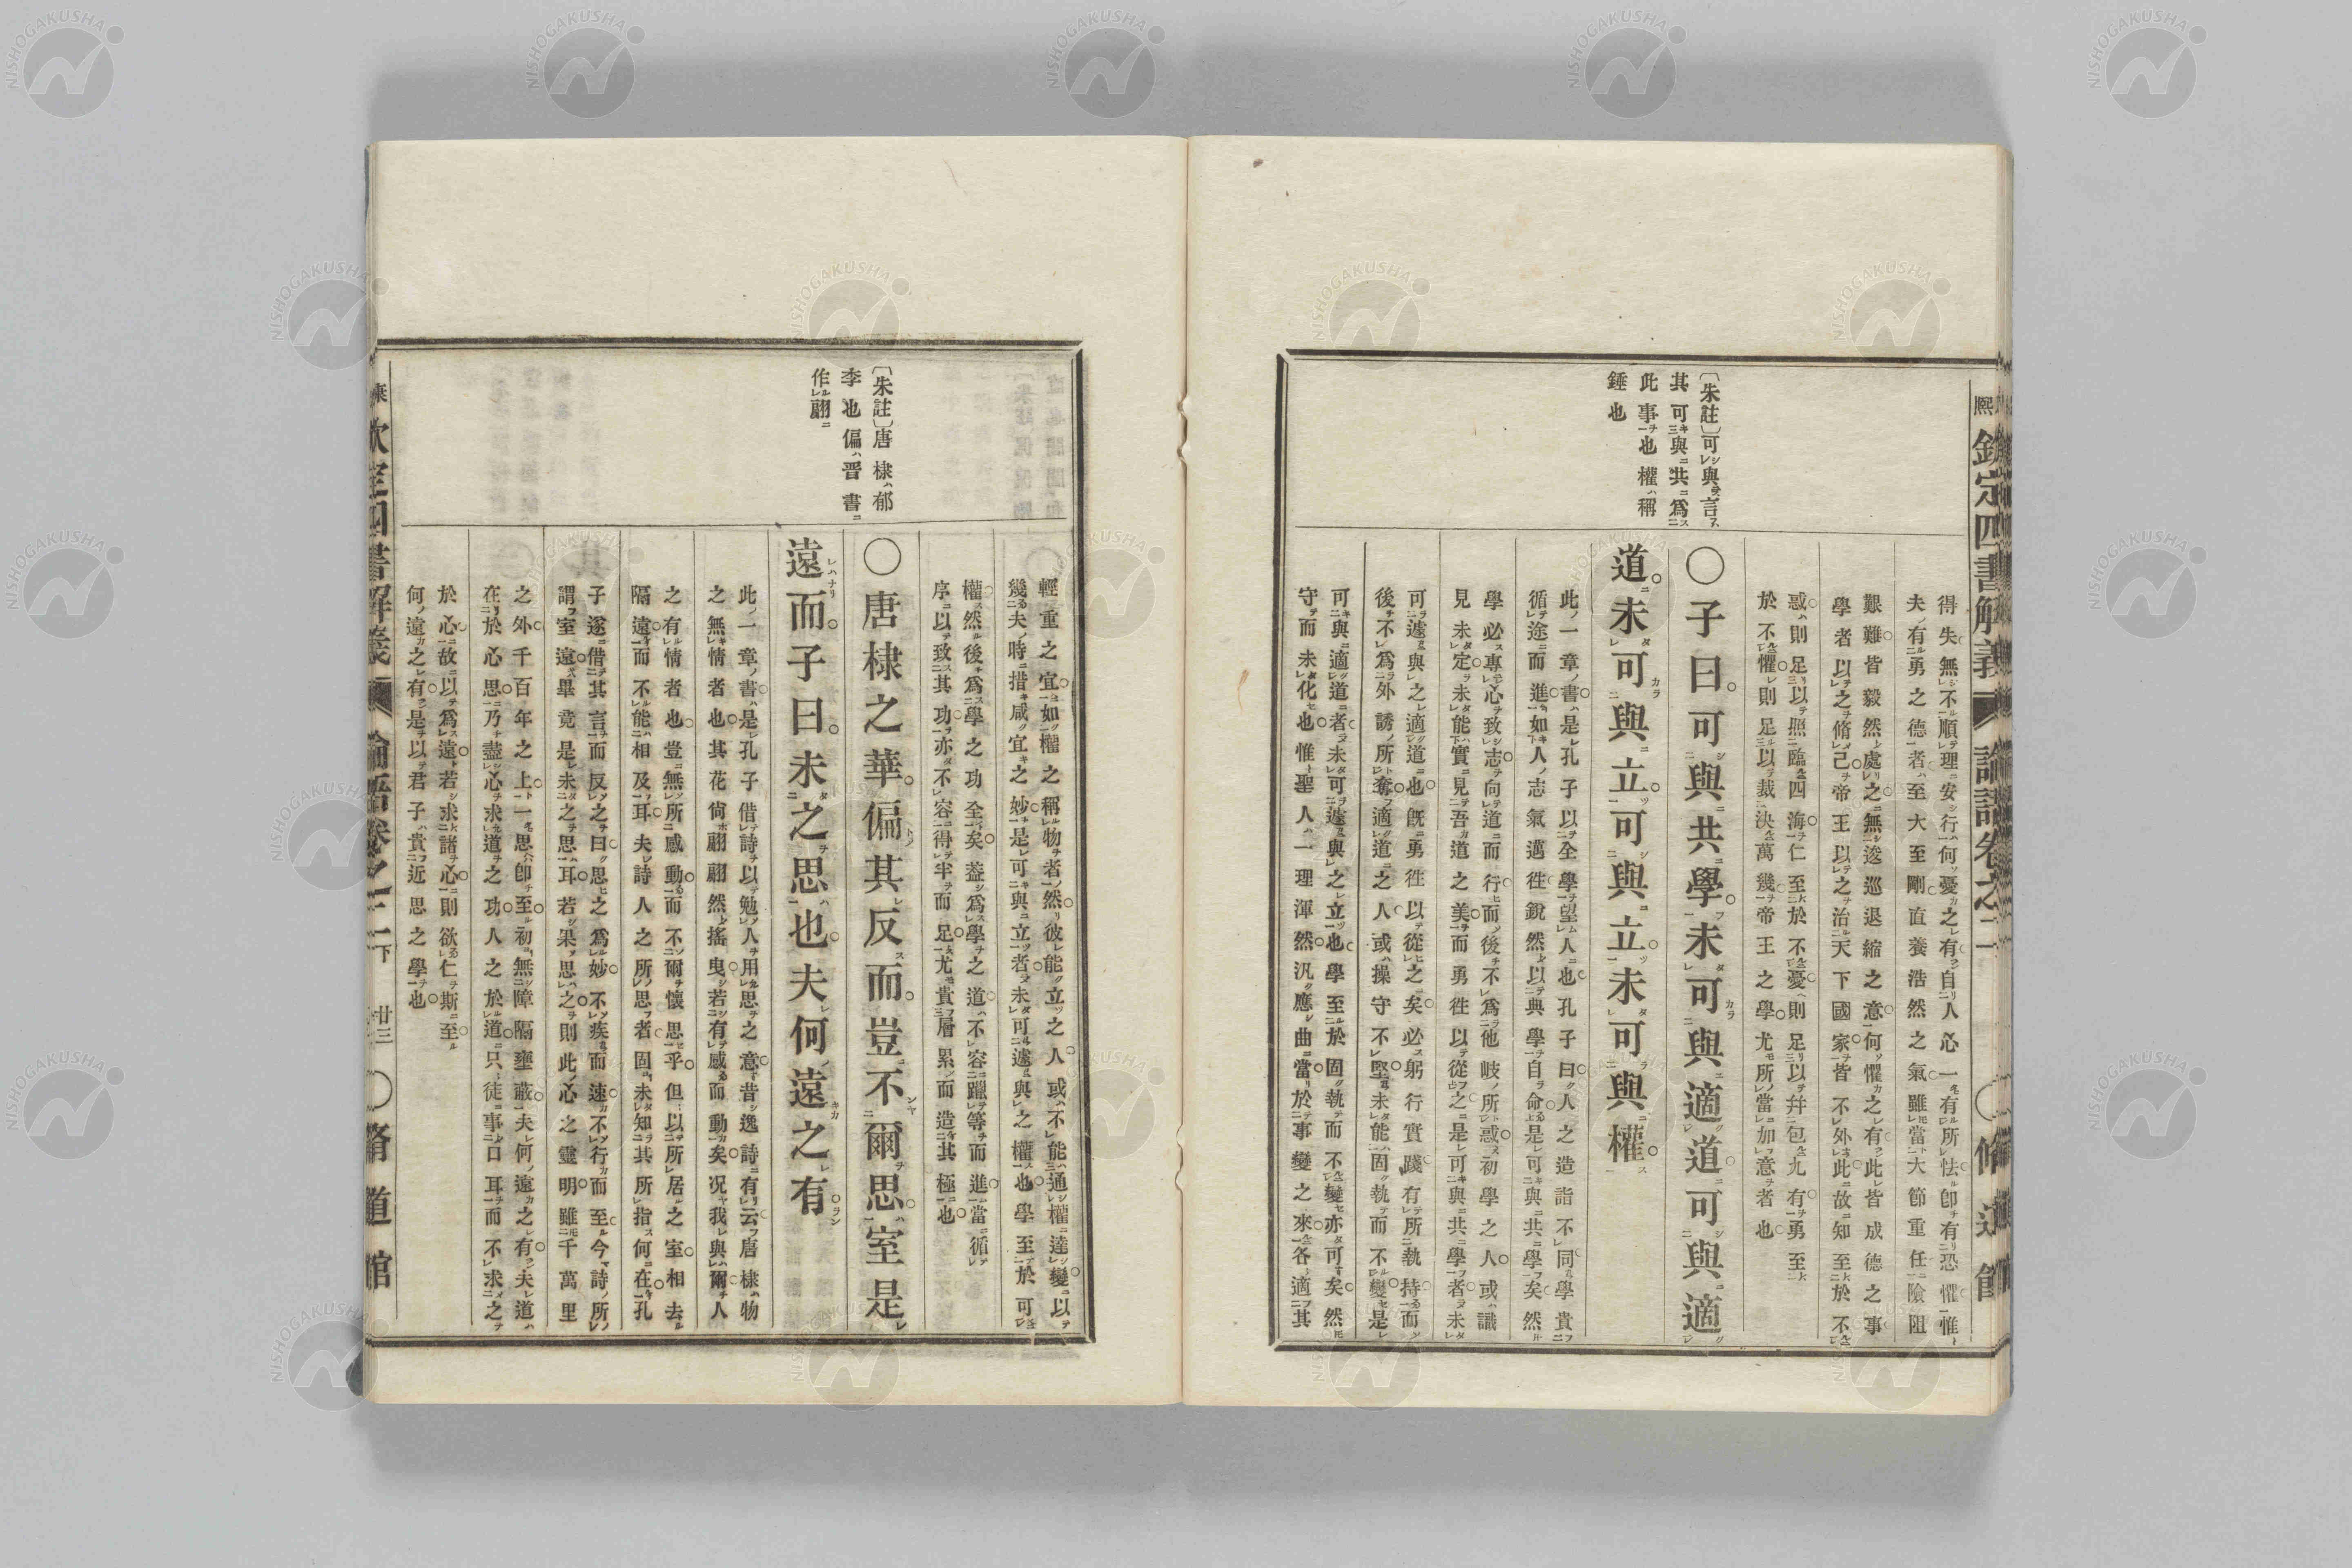 得失無不順理安行何憂之有自人心一有所怯卽有恐懼惟
夫有勇之德者至大至剛直養浩然之氣雖當大節重任險阻
艱難皆毅然處之無逡巡退縮之意何懼之有此皆成德之事
學者以之脩己帝王以之治天下國家皆不外此故知至於不
惑則足以照臨四海仁至於不憂則足以幷包九有勇至
於不懼則足以裁決萬幾帝王之學尤所當加意者也
〔朱註〕可與言
其可與共爲
此事也權稱
錘也
〇子曰可與共學未可與適道可與適
道未可與立可與立未可與權
此一章書是孔子以全學望人也孔子曰人之造詣不同學貴
循途而進如人志氣邁往銳然以典學自命是可與共學矣然
學必專心致志向道而行而後不爲他岐所惑初學之人或識
見未定未能實見吾道之美而勇往以從之是可與共學者未
可遽與之適道也旣勇往以從之矣必躬行實踐有所執持而
後不爲外誘所奪適道之人或操守不堅未能固執而不變是
可與適道者未可遽與之立也學至於固執而不變亦可矣然
守而未化也惟聖人一理渾然汎應曲當於事變之來各適其
欽定四書解義 論語卷之二 〇脩道館
輕重之宜如權之稱物者然彼能立之人或不能通權達變以
幾夫時措咸宜之妙是可與立者未可遽與之權也學至於可
權然後爲學之功全矣蓋爲學之道不容躐等而進當循
序以致其功亦不容得半而足尤貴層累而造其極也
〔朱註〕唐棣郁
李也偏晋書
作翩
〇唐棣之華偏其反而豈不爾思室是
遠而子曰未之思也夫何遠之有
此一章書是孔子借詩以勉人用思之意昔逸詩有云唐棣物
之無情者也其花尙翩翩然搖曳若有感而動矣况我與爾人
之有情者也豈無所感動而不爾懷思乎但以所居之室相去
隔遠而不能相及耳夫詩人之所思者固未知其所指何在孔
子遂借其言而反之曰思之爲妙不疾而速不行而至今詩所
謂室遠畢竟是未之思耳若果思之則此心之靈明雖千萬里
之外千百年之上一思卽至初無障隔壅蔽夫何遠之有夫道
在於心思乃盡心求道之功人之於道只徒事口耳而不求之
於心故以爲遠若求諸心則欲仁斯至
何遠之有是以君子貴近思之學也
欽定四書解義 論語卷之二 下 廿三 〇脩道館